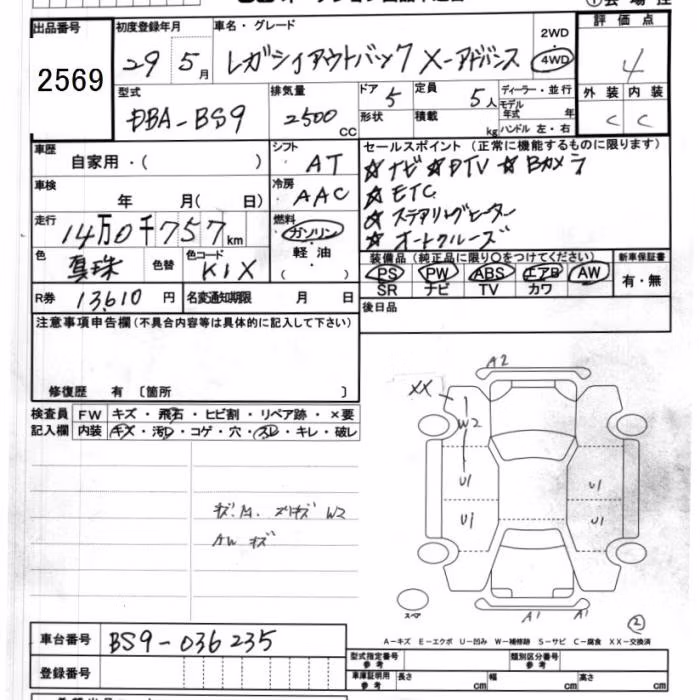 出品番号 初度登録年月 車名・グレード 評価点
2569 29 5月 レガシィアウトバック X-アドバンス 2WD 4WD 4
型式 排気量 ドア 定員 ディーラー・並行 外装 内装
DBA-BS9 2500 CC 5 5人 モデル年式 年 C C
形状 積載 kg ハンドル 左・右
車歴 自家用・( ) シフト AT セールスポイント (正常に機能するものに限ります)
☆ナビ ☆DTV ☆Bカメラ
車検 年 月( 日) 冷房 AAC ☆ETC
走行 14万0千757km 燃料 ガソリン ☆ステアリングヒーター
軽油 ☆オートクルーズ
色 真珠 色替 色コード K1X ( )
装備品 (純正品に限り○をつけてください) 新車保証書
PS PW ABS エアB AW 有・無
SR ナビ TV カワ
R券 13,610円 名変通知期限 月 日 後日品
注意事項申告欄(不具合内容等は具体的に記入して下さい)
修復歴 有 〔箇所 〕
検査員 FW キズ・飛石・ヒビ割・リペア跡・×要
記入欄 内装 キズ・汚レ・コゲ・穴・スレ・キレ・破レ
A2
XX
W2
U1 U1
U1 U1
W2
AW キズ
スペア
A1 A1
②
A-キズ E-エクボ U-凹み W-補修跡 S-サビ C-腐食 XX-交換済
車台番号 BS9-036235
型式指定番号 参考 類別区分番号 参考
登録番号
車庫証明用 参考 長さ cm 幅 cm 高さ cm